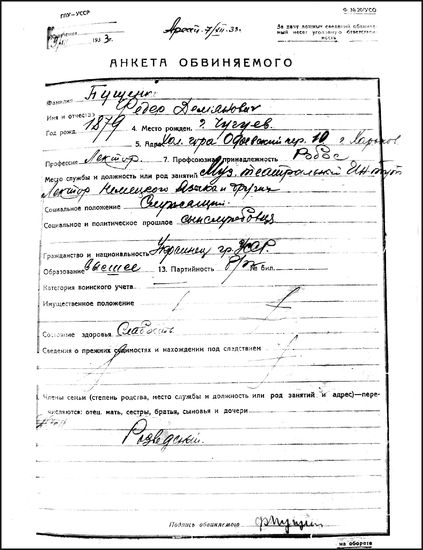 ГПУ-УССР
Арест. 7/XII-33.
Ф. № 20/УСО
За дачу ложных сведений обвиняемый несет уголовную ответственность.
193 3 г.
АНКЕТА ОБВИНЯЕМОГО
Фамилия Пущенко
Имя и отчество Федор Демьянович
Год рожд. 1879 4. Место рожден. г. Чугуев.
5. Адрес Хол. гора 10 г. Харьков
Профессия Лектор. 7. Профсоюзн. принадлежность Робос
Место службы и должность или род занятий Муз. театральный Инстит
Лектор Немецкого языка и других
Социальное положение Служащий.
Социальное и политическое прошлое
Гражданство и национальность Украинец гр. УССР.
Образование высшее 13. Партийность б/п № бил.
Категория воинского учета
Имущественное положение
Состояние здоровья Слабость
Сведения о прежних судимостях и нахождении под следствием
Члены семьи (степень родства, место службы и должность или род занятий и адрес)—пере-
числяются: отец, мать, сестры, братья, сыновья и дочери
Розведский.
Подпись обвиняемого
на обороте